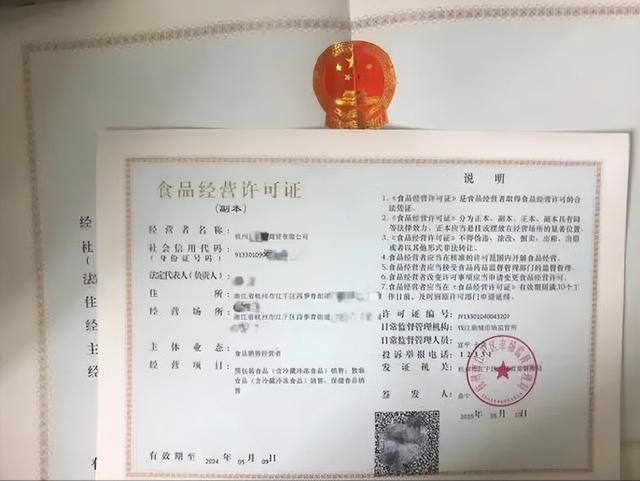 食品经营许可证
(副本)
经营者名称 杭州 商贸有限公司
社会信用代码
(身份证号码) 9133010900
法定代表人(负责人)
住所 浙江省杭州市江干区四季青街道
经营场所 浙江省杭州市江干区四季青街道
主体业态 食品销售经营者
经营项目 预包装食品(含冷藏冷冻食品)销售;散装
食品(含冷藏冷冻食品)销售;保健食品销
售
有效期至 2024 年 05 月 09日
说明
1.《食品经营许可证》是食品经营者取得食品经营许可的合
法凭证。
2.《食品经营许可证》分为正本、副本。正本、副本具有同
等法律效力,正本应当悬挂或摆放在经营场所的显著位置。
3.《食品经营许可证》不得伪造、涂改、倒卖、出租、出借
或者以其他形式非法转让。
4.食品经营者应当在核准的许可范围内开展食品经营。
5.食品经营者应当接受食品药品监督管理部门的监督管理。
6.食品经营者改变许可事项应当申请变更食品经营许可。
7.《食品经营许可证》有效期届满30个工
作日前,及时到原许可部门申请延续。
许可证编号 JY13301040043207
日常监督管理机构: 钱江新城市场监管所
日常监督管理人员:
投诉举报电话: 12331
发证机关
签发人 俞宁
2019 年 05 月 10日
经
社
法
住
经
主
经
有